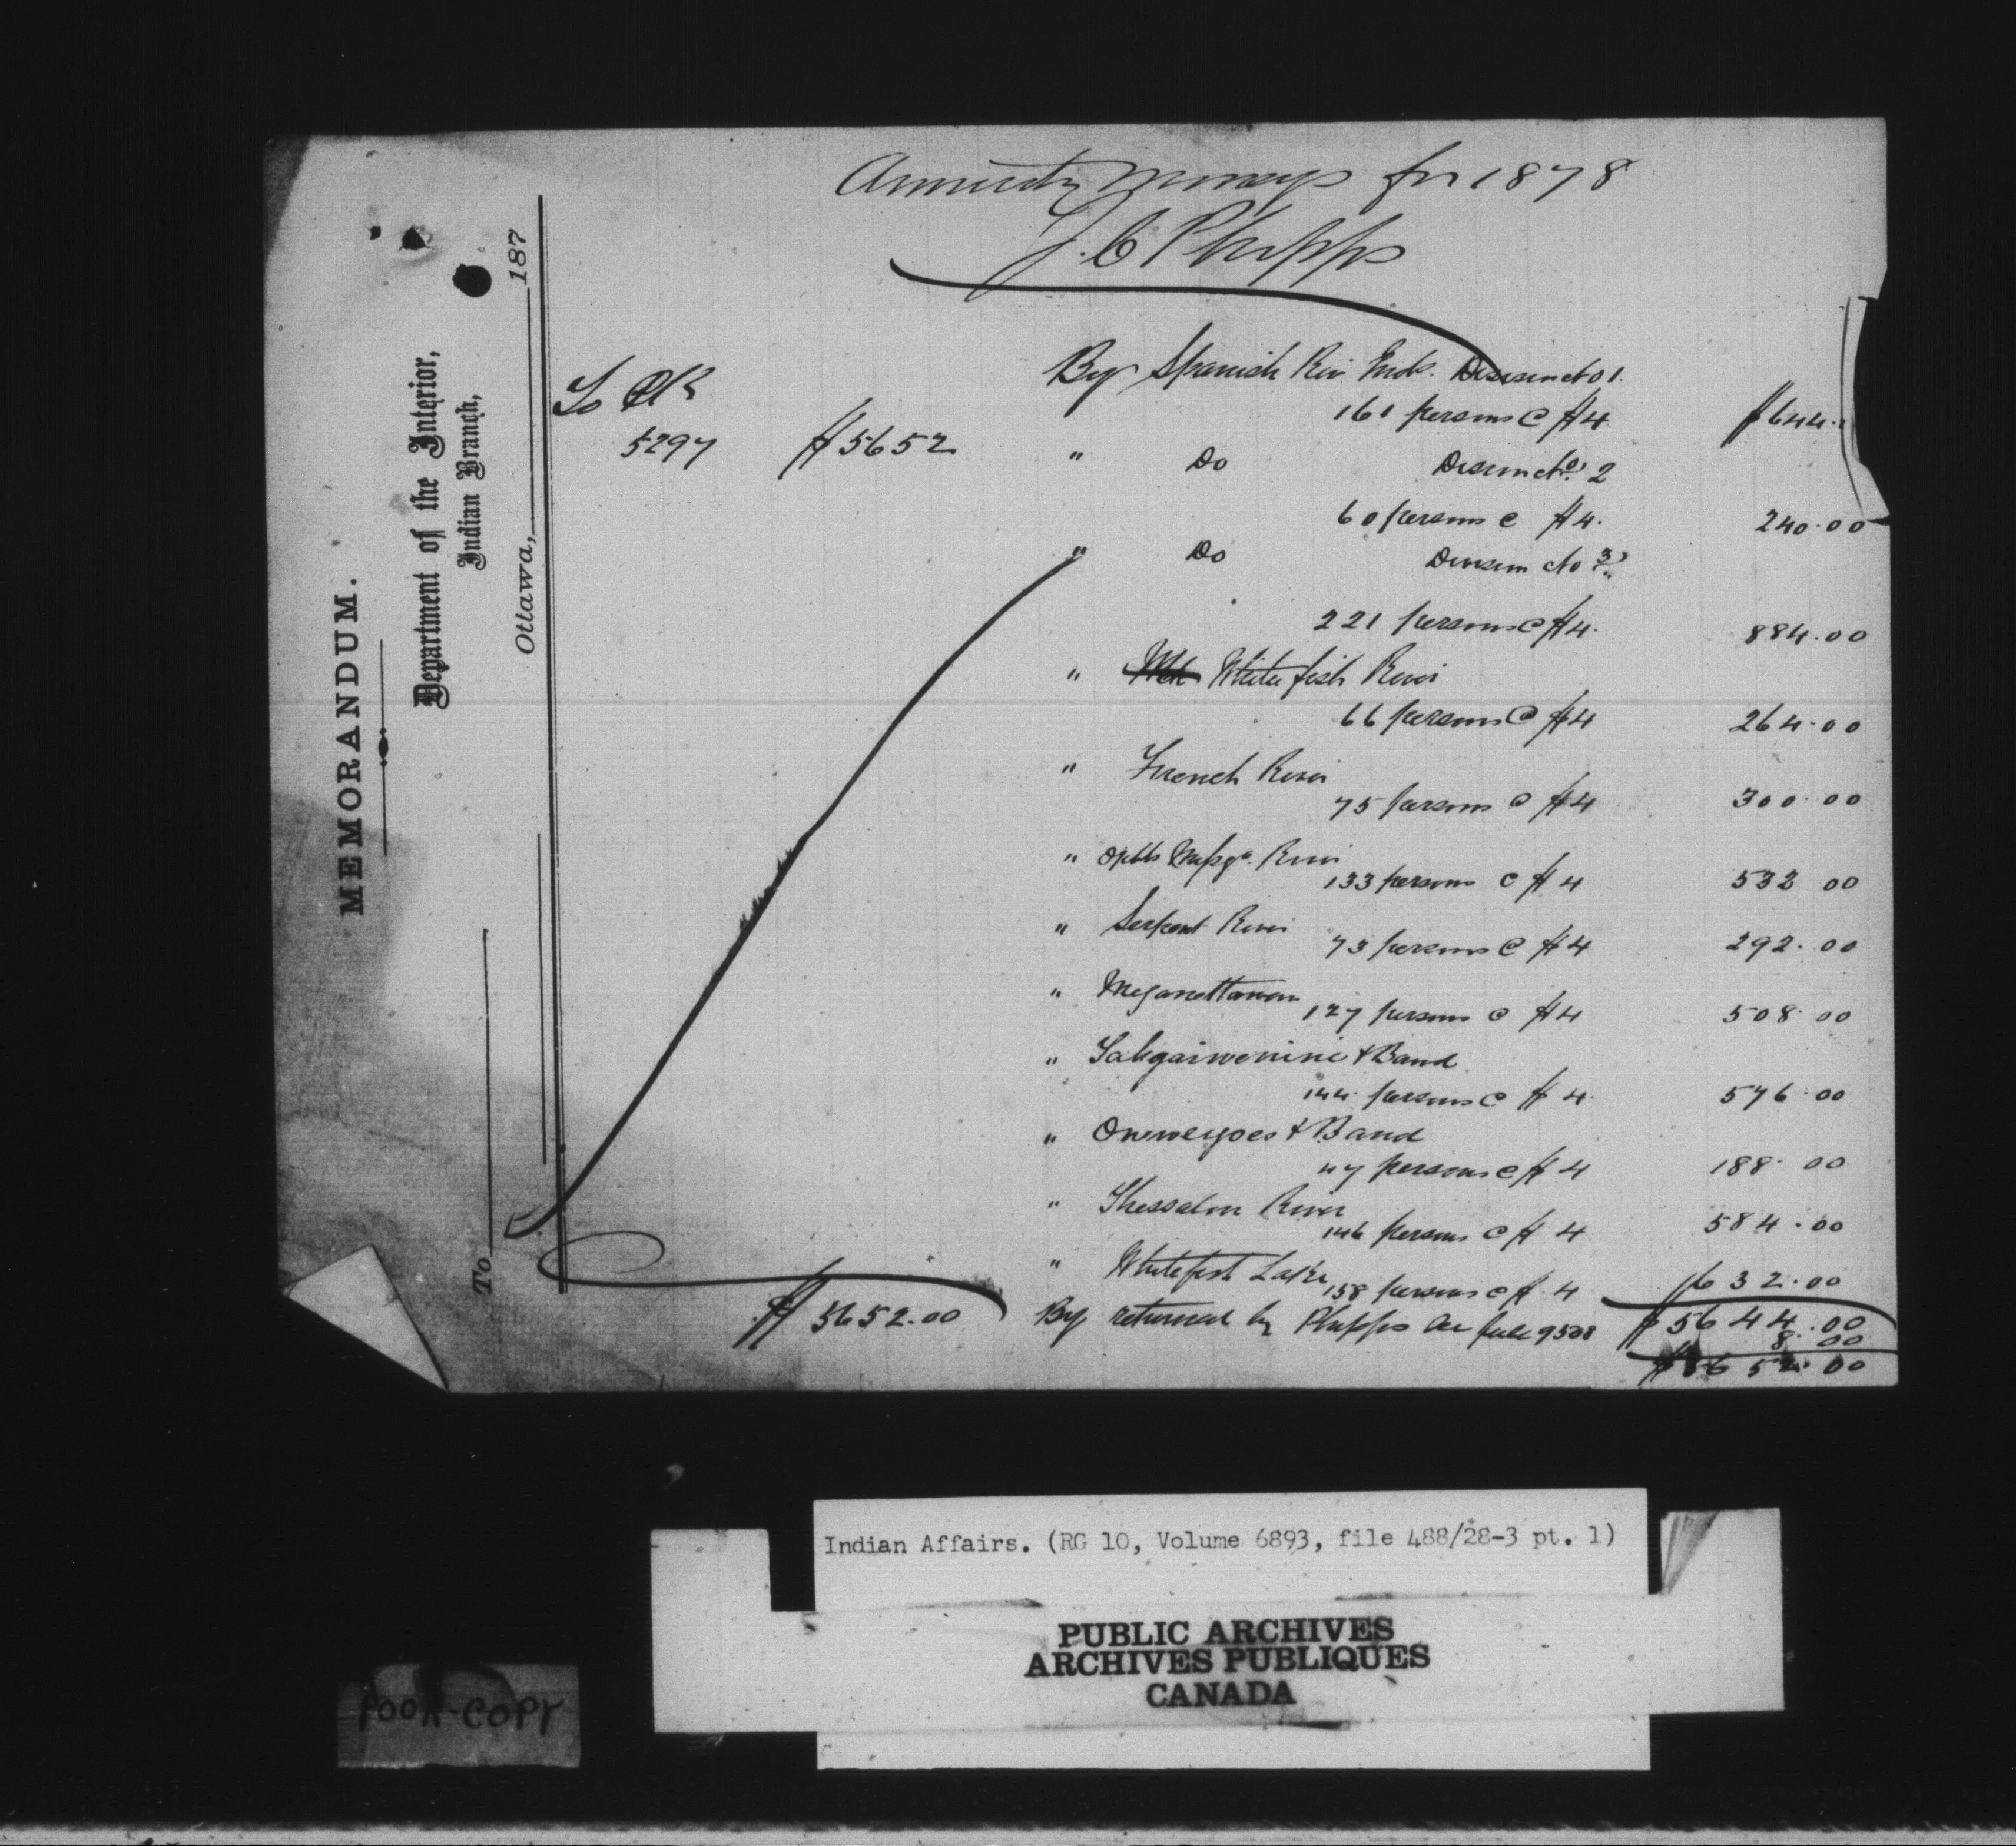 MEMORANDUM.
Department of the Interior,
Indian Branch,
Ottawa, 187
To
Annuity moneys for 1878
J. C Phipps
To Ck
5297 $5652
By Spanish Riv Inds. Division No 1.
161 persons @ $4 $644.
" Do Division No. 2
60 persons @ $4. 240.00
" Do Division No 3
221 persons @ $4. 884.00
" White fish River
66 persons @ $4 264.00
" French River
75 persons @ $4 300.00
" River
133 persons @ $4 532 00
" Serpent River
73 persons @ $4 292.00
" Meganettawan
127 persons @ $4 508.00
" Tahgaiwenini & Band
144 persons @ $4 576.00
" Onewegoes & Band
47 persons @ $4 188.00
" Thessalon River
146 persons @ $4 584.00
" Whitefish Lake
158 persons @ $4 632.00
$5644.00
$5652.00 By returned by Phipps 9508 8.00
$5652.00
Indian Affairs. (RG 10, Volume 6893, file 488/28-3 pt. 1)
PUBLIC ARCHIVES
ARCHIVES PUBLIQUES
CANADA
POOR COPY